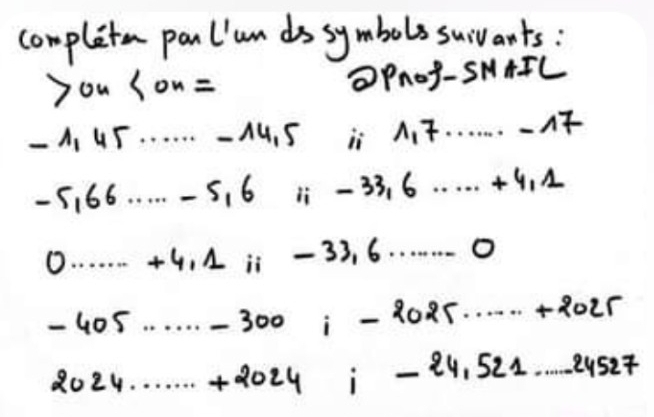 compléter par l'un ds symbols suivants :
> ou < ou = @Prof-SMAIL
- 1,45 ....... - 14,5 ;; 1,7 ....... - 17
- 5,66 ..... - 5,6 ;; - 33,6 ..... + 4,1
0 ....... + 4,1 ;; - 33,6 ........ 0
- 405 ....... - 300 ; - 2025 ....... + 2025
2024 ....... + 2024 ; - 24,521 ...... 24527